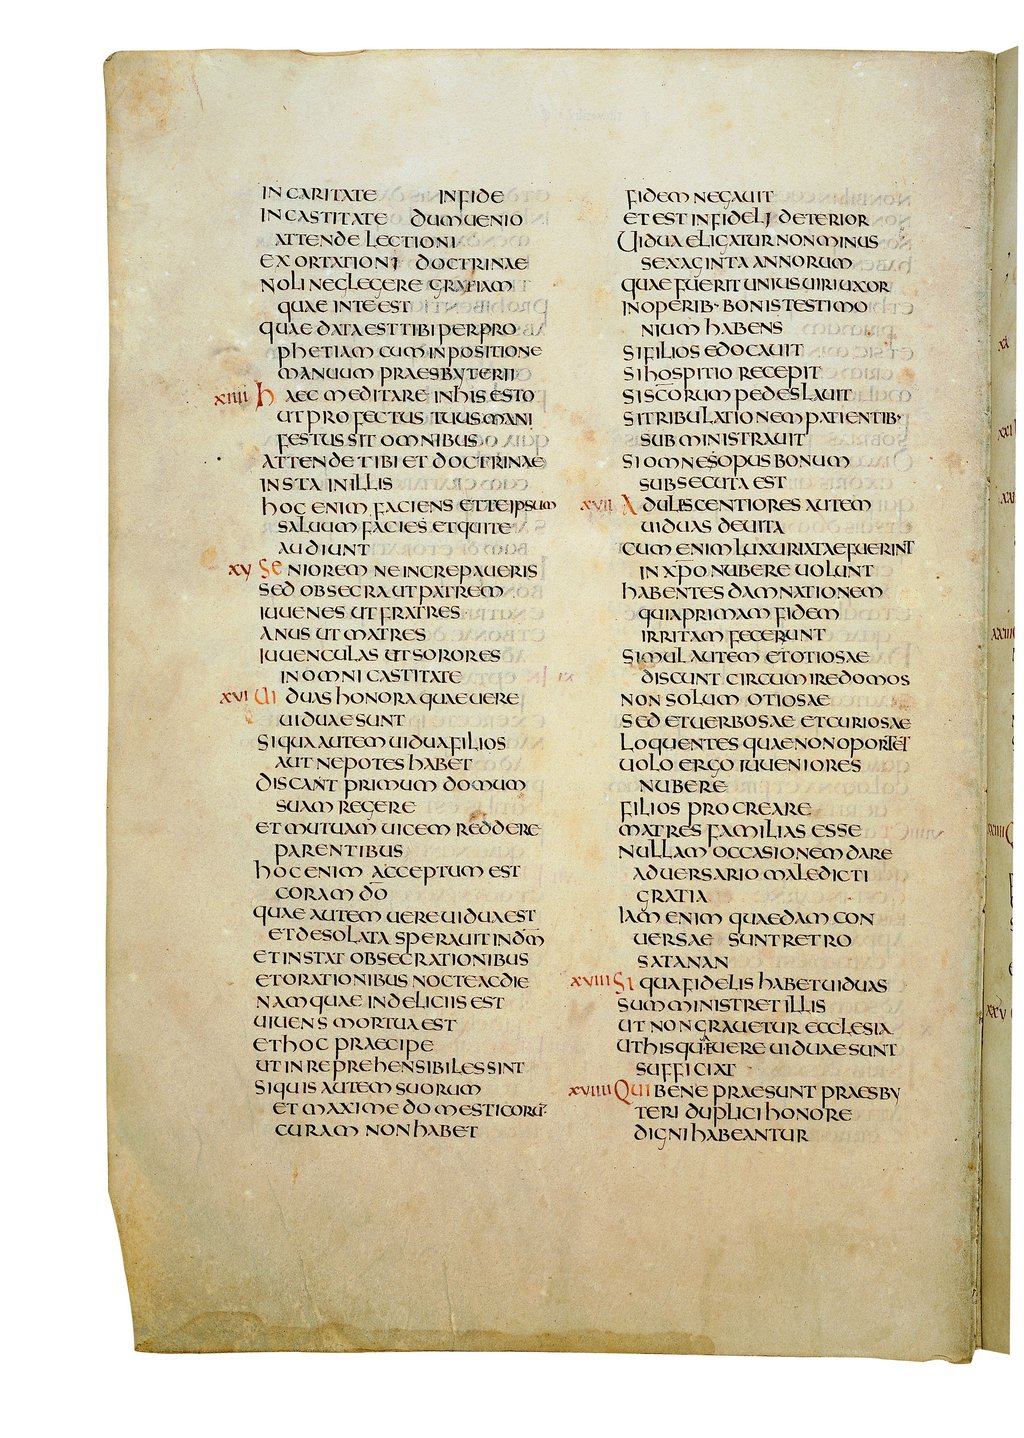 IN CARITATE IN FIDE
IN CASTITATE DUM UENIO
ATTENDE LECTIONI
EXORTATIONI DOCTRINAE
NOLI NEGLEGERE GRATIAM
QUAE INTE EST
QUAE DATA EST TIBI PER PRO
PHETIAM CUM INPOSITIONE
MANUUM PRAESBYTERII
XIIII HAEC MEDITARE IN HIS ESTO
UT PROFECTUS TUUS MANI
FESTUS SIT OMNIBUS
ATTENDE TIBI ET DOCTRINAE
INSTA IN ILLIS
HOC ENIM FACIENS ET TE IPSUM
SALUUM FACIES ET QUI TE
AUDIUNT
XV SENIOREM NE INCREPAUERIS
SED OBSECRA UT PATREM
IUUENES UT FRATRES
ANUS UT MATRES
IUUENCULAS UT SORORES
IN OMNI CASTITATE
XVI UIDUAS HONORA QUAE UERE
UIDUAE SUNT
SI QUA AUTEM UIDUA FILIOS
AUT NEPOTES HABET
DISCANT PRIMUM DOMUM
SUAM REGERE
ET MUTUAM UICEM REDDERE
PARENTIBUS
HOC ENIM ACCEPTUM EST
CORAM DO̅
QUAE AUTEM UERE UIDUA EST
ET DESOLATA SPERAUIT IN DN̅M
ET INSTAT OBSECRATIONIBUS
ET ORATIONIBUS NOCTE AC DIE
NAM QUAE IN DELICIIS EST
UIUENS MORTUA EST
ET HOC PRAECIPE
UT INREPREHENSIBILES SINT
SI QUIS AUTEM SUORUM
ET MAXIME DOMESTICORU̅
CURAM NON HABET
FIDEM NEGAUIT
ET EST INFIDELI DETERIOR
UIDUA ELIGATUR NON MINUS
SEXAGINTA ANNORUM
QUAE FUERIT UNIUS UIRI UXOR
IN OPERIB· BONIS TESTIMO
NIUM HABENS
SI FILIOS EDOCAUIT
SI HOSPITIO RECEPIT
SI SC̅ORUM PEDES LAUIT
SI TRIBULATIONEM PATIENTIB·
SUBMINISTRAUIT
SI OMNE OPUS BONUM
SUBSECUTA EST
XVII ADULISCENTIORES AUTEM
UIDUAS DEUITA
CUM ENIM LUXURIATAE FUERINT
IN XP̅O NUBERE UOLUNT
HABENTES DAMNATIONEM
QUIA PRIMAM FIDEM
IRRITAM FECERUNT
SIMUL AUTEM ET OTIOSAE
DISCUNT CIRCUMIRE DOMOS
NON SOLUM OTIOSAE
SED ET UERBOSAE ET CURIOSAE
LOQUENTES QUAE NON OPORTET
UOLO ERGO IUUENIORES
NUBERE
FILIOS PROCREARE
MATRES FAMILIAS ESSE
NULLAM OCCASIONEM DARE
ADUERSARIO MALEDICTI
GRATIA
IAM ENIM QUAEDAM CON
UERSAE SUNT RETRO
SATANAN
XVIII SI QUA FIDELIS HABET UIDUAS
SUMMINISTRET ILLIS
UT NON GRAUETUR ECCLESIA
UT HIS QUE UERE UIDUAE SUNT
SUFFICIAT
XVIIII QUI BENE PRAESUNT PRAESBY
TERI DUPLICI HONORE
DIGNI HABEANTUR